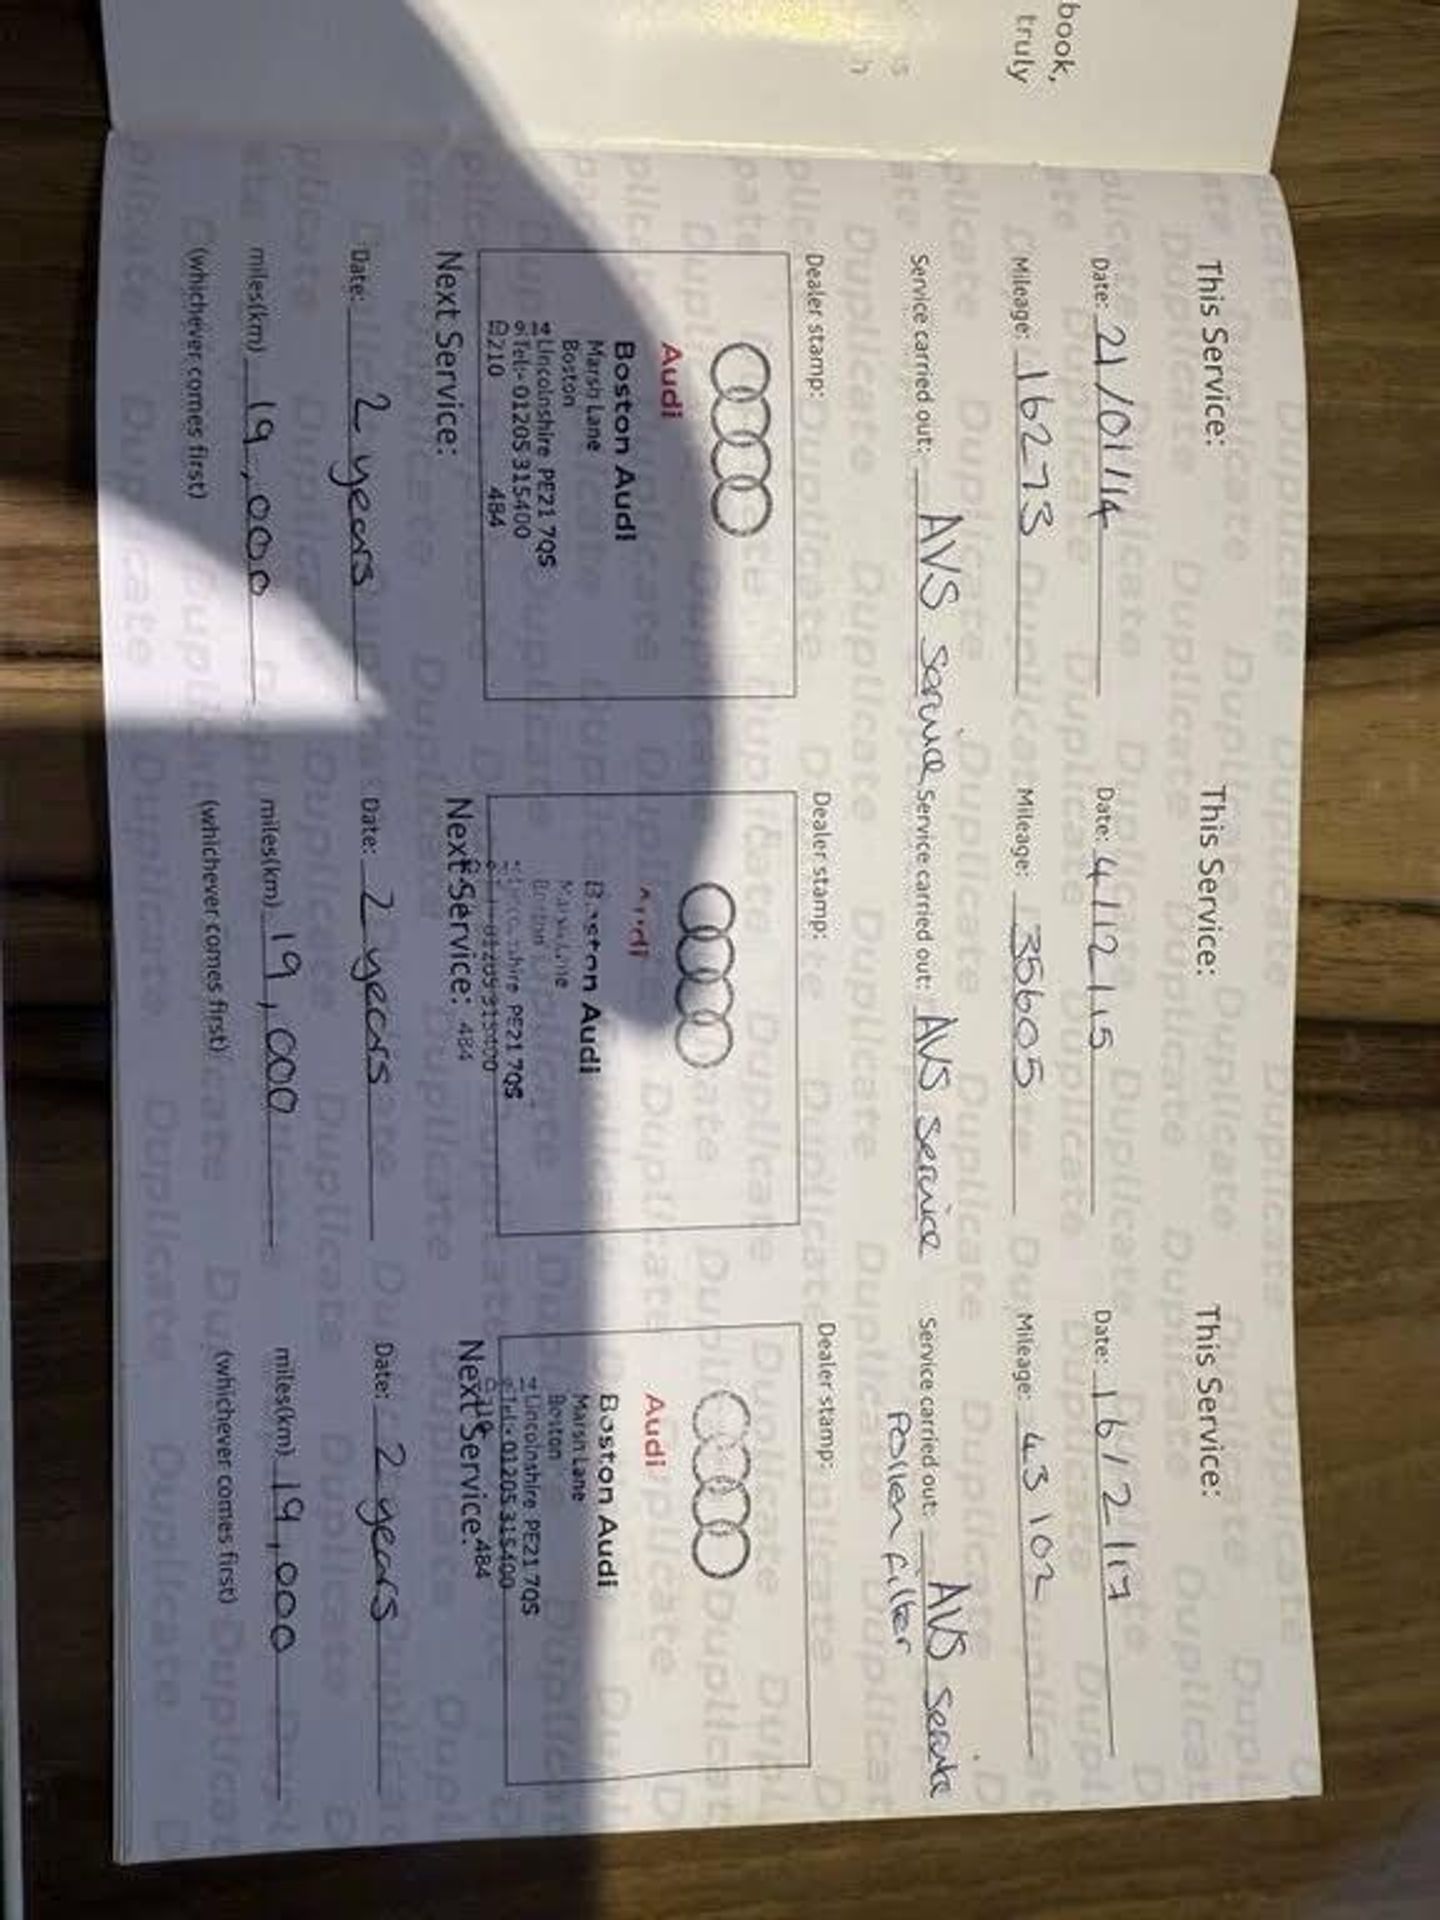 book,
truly
This Service:
Date: 21/01/14
Mileage: 16273
Service carried out: AVS service
Dealer stamp:
Audi
Boston Audi
Marsh Lane
Boston
Lincolnshire PE21 7QS
Tel:- 01205 315400
210 484
Next Service:
Date: 2 years
miles(km) 19,000
(whichever comes first)
This Service:
Date: 4/12/15
Mileage: 35605
Service carried out: AVS service
Dealer stamp:
Boston Audi
PE21 7QS
01205 315400
484
Next Service:
Date: 2 years
miles(km) 19,000
(whichever comes first)
This Service:
Date: 16/2/17
Mileage: 43102
Service carried out: AVS service
Pollen filter
Dealer stamp:
Audi
Boston Audi
Marsh Lane
Boston
Lincolnshire PE21 7QS
Tel:- 01205 315400
484
Next Service:
Date: 2 years
miles(km) 19,000
(whichever comes first)
Duplicate Duplicate Duplicate Duplicate